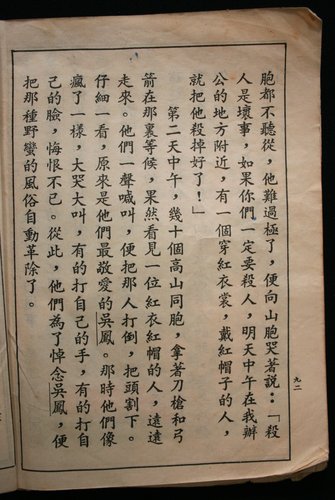 胞都不聽從，他難過極了，便向山胞哭著說：「殺
人是壞事，如果你們一定要殺人，明天中午在我辦
公的地方附近，有一個穿紅衣裳，戴紅帽子的人，
就把他殺掉好了！」
第二天中午，幾十個高山同胞，拿著刀槍和弓
箭在那裏等候，果然看見一位紅衣紅帽的人，遠遠
走來。他們一聲喊叫，便把那人打倒，把頭割下。
仔細一看，原來是他們最敬愛的吳鳳。那時他們像
瘋了一樣，大哭大叫，有的打自己的手，有的打自
己的臉，悔恨不已。從此，他們為了悼念吳鳳，便
把那種野蠻的風俗自動革除了。
九二